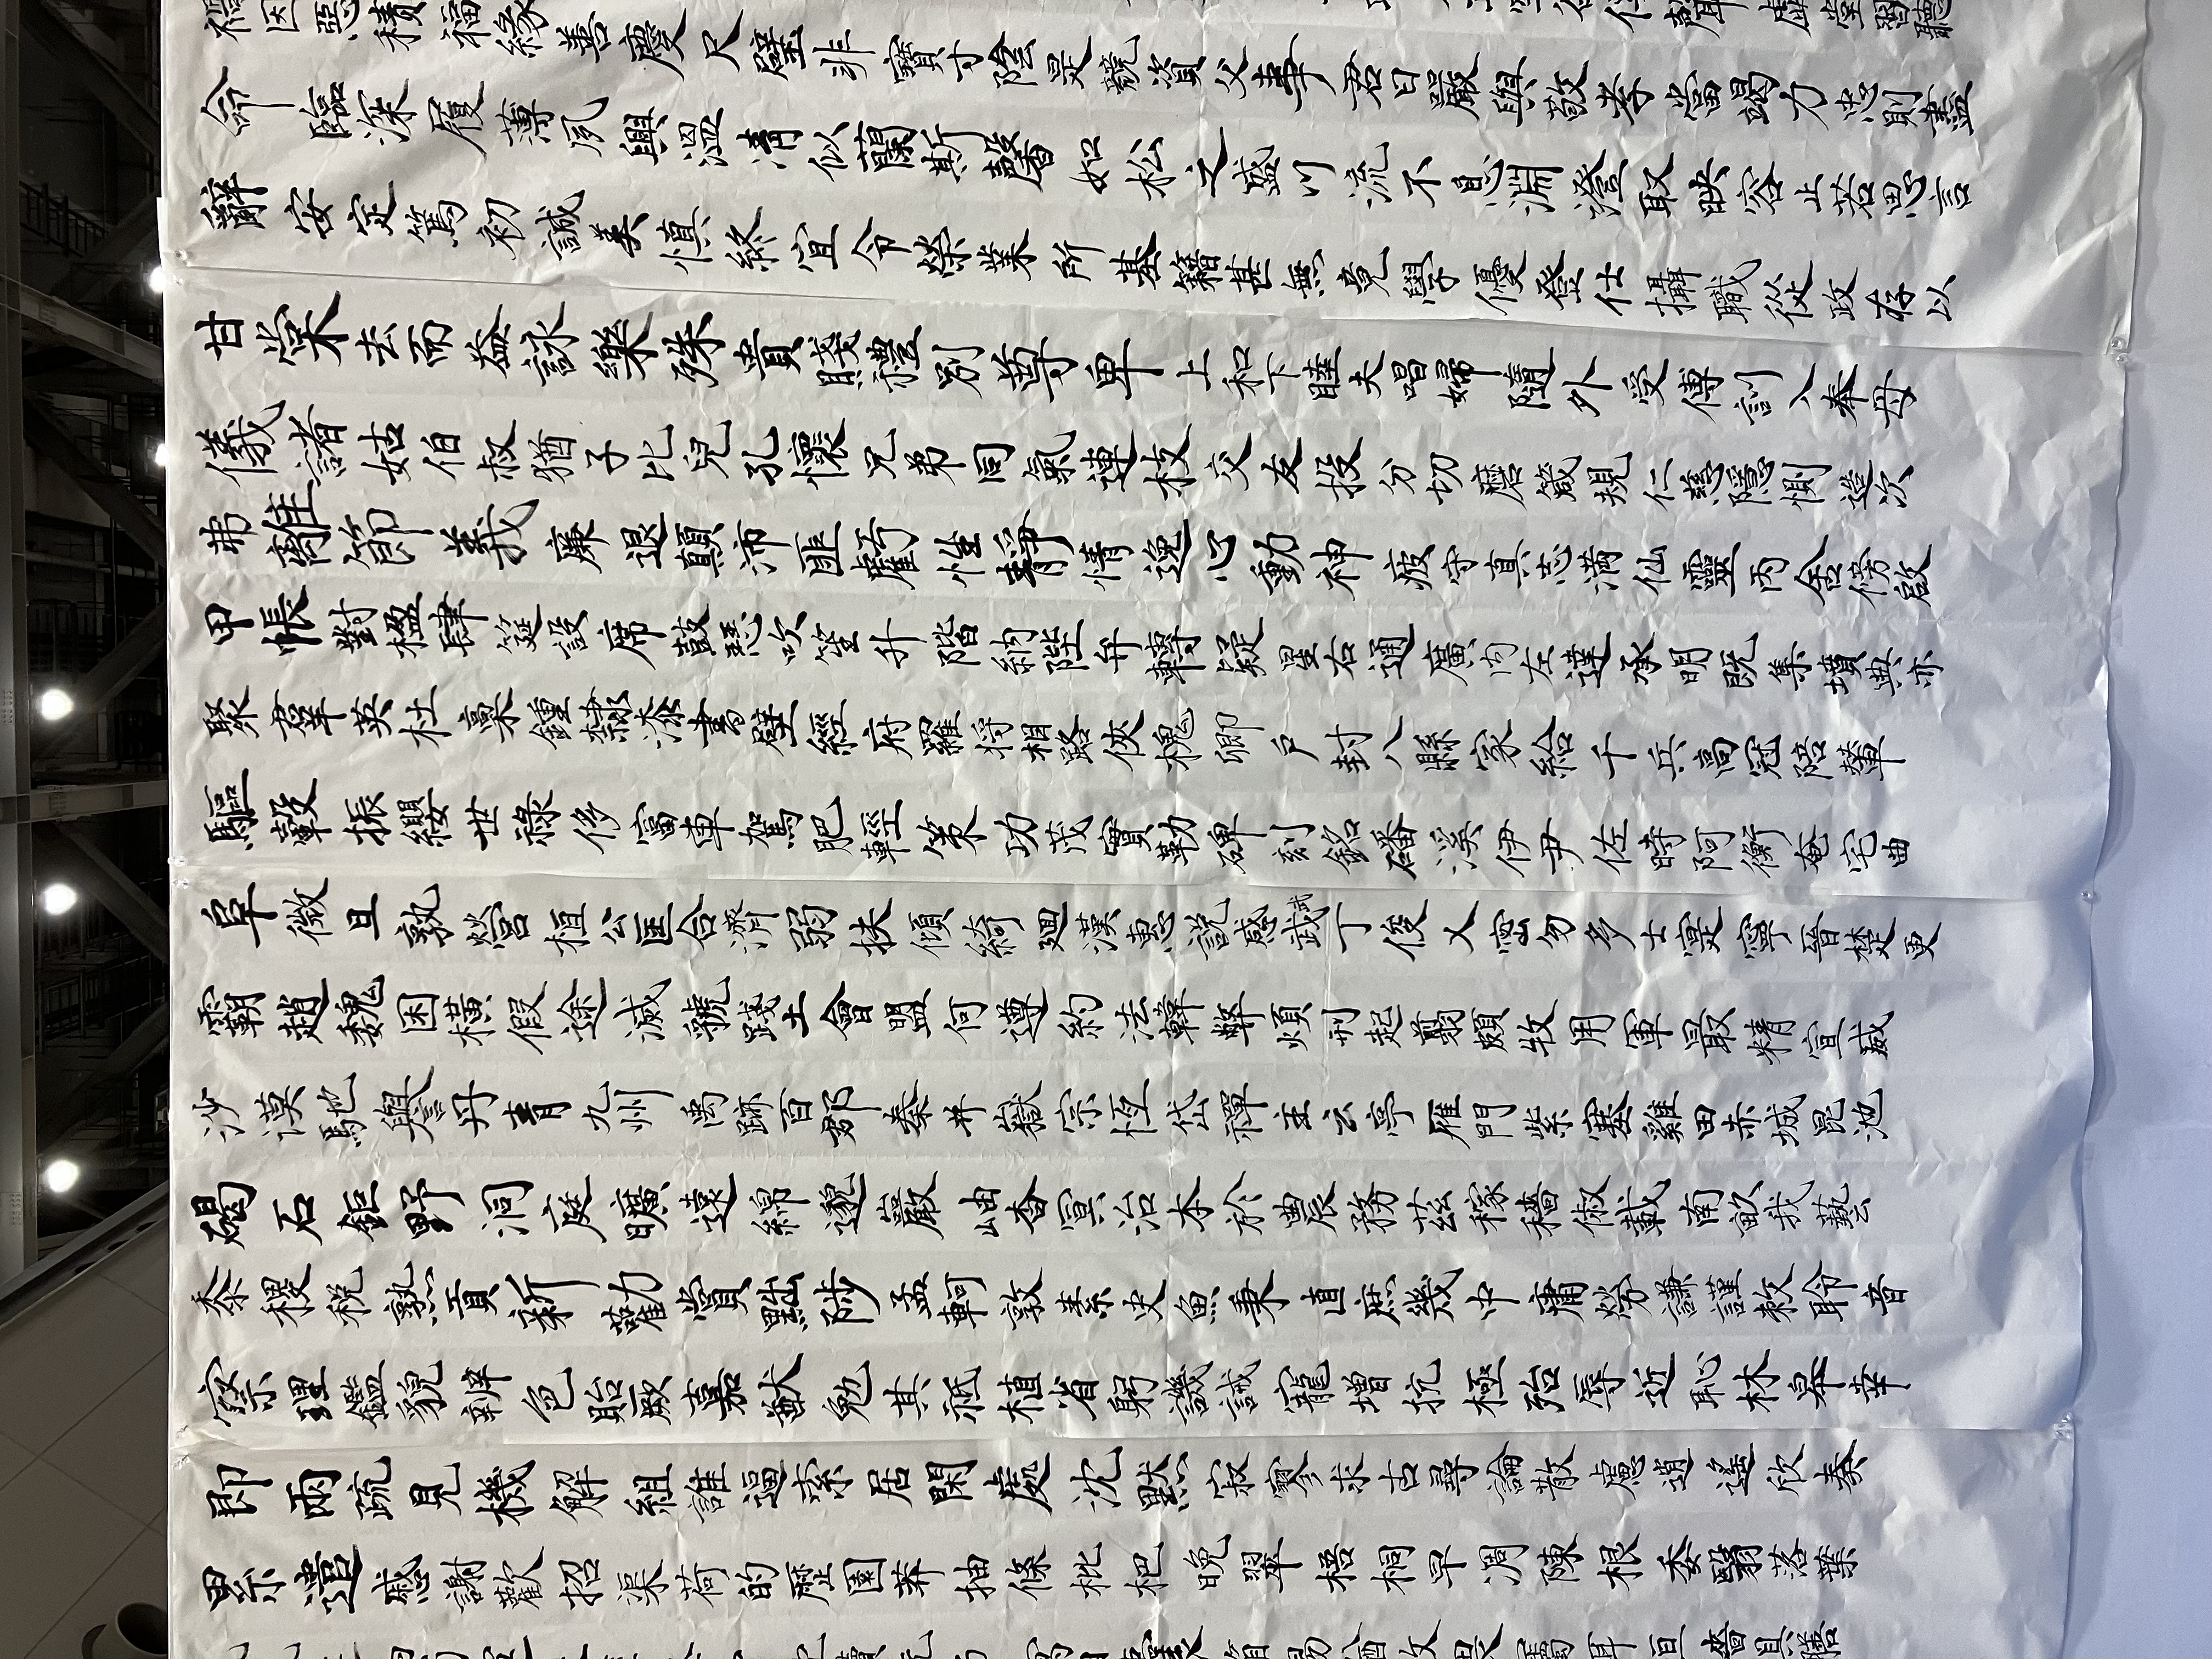 谷傳聲虛堂習聽
禍因惡積福緣善慶尺璧非寶寸陰是競資父事君曰嚴與敬孝當竭力忠則盡
命臨深履薄夙興溫凊似蘭斯馨如松之盛川流不息淵澄取映容止若思言
辭安定篤初誠美慎終宜令榮業所基籍甚無竟學優登仕攝職從政存以
甘棠去而益詠樂殊貴賤禮別尊卑上和下睦夫唱婦隨外受傅訓入奉母
儀諸姑伯叔猶子比兒孔懷兄弟同氣連枝交友投分切磨箴規仁慈隱惻造次
弗離節義廉退顛沛匪虧性靜情逸心動神疲守真志滿仙靈丙舍傍啟
甲帳對楹肆筵設席鼓瑟吹笙升階納陛弁轉疑星右通廣內左達承明既集墳典亦
聚群英杜稾鍾隸漆書壁經府羅將相路俠槐卿戶封八縣家給千兵高冠陪輦
驅轂振纓世祿侈富車駕肥輕策功茂實勒碑刻銘磻溪伊尹佐時阿衡奄宅曲
阜微旦孰營桓公匡合濟弱扶傾綺迴漢惠說感武丁俊乂密勿多士寔寧晉楚更
霸趙魏困橫假途滅虢踐土會盟何遵約法韓弊煩刑起翦頗牧用軍最精宣威
沙漠馳譽丹青九州禹跡百郡秦并嶽宗恆岱禪主云亭雁門紫塞雞田赤城昆池
碣石鉅野洞庭曠遠綿邈巖岫杳冥治本於農務茲稼穡俶載南畝我藝
黍稷稅熟貢新勸賞黜陟孟軻敦素史魚秉直庶幾中庸勞謙謹敕聆音
察理鑑貌辨色貽厥嘉猷勉其祗植省躬譏誡寵增抗極殆辱近恥林皋幸
即兩疏見機解組誰逼索居閑處沈默寂寥求古尋論散慮逍遙欣奏
累遣慼謝歡招渠荷的歷園莽抽條枇杷晚翠梧桐早凋陳根委翳落葉
寓目囊箱易輶攸畏屬耳垣牆具膳